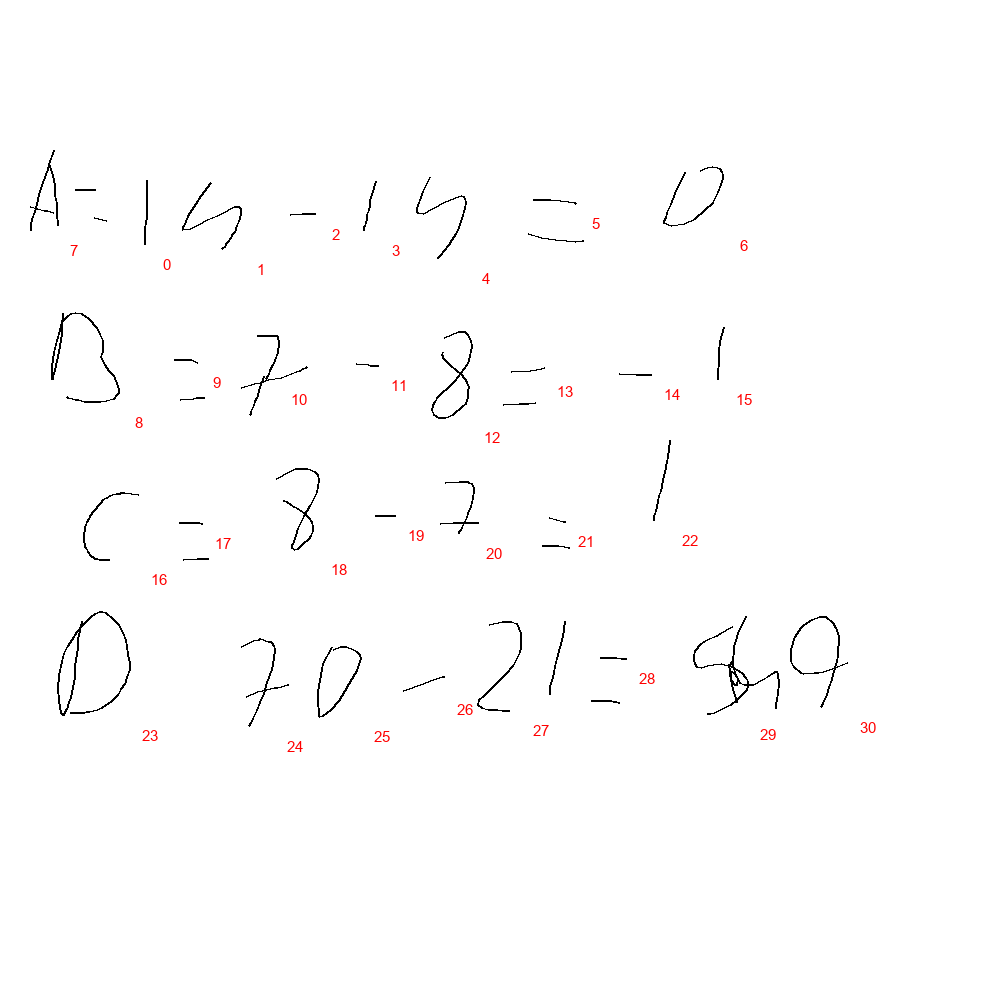 A = 14 - 14 = 0
7 0 1 2 3 4 5 6
B = 7 - 8 = - 1
8 9 10 11 12 13 14 15
C = 8 - 7 = 1
16 17 18 19 20 21 22
D 70 - 21 = 49
23 24 25 26 27 28 29 30